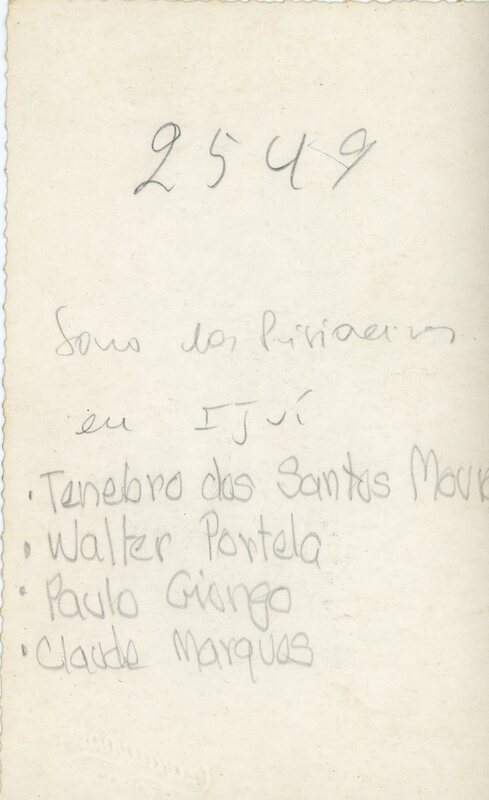 2549
dos
en IJuí
· Tenebro dos Santos Mour
· Walter Portela
· Paulo Giongo
· Claude Marques